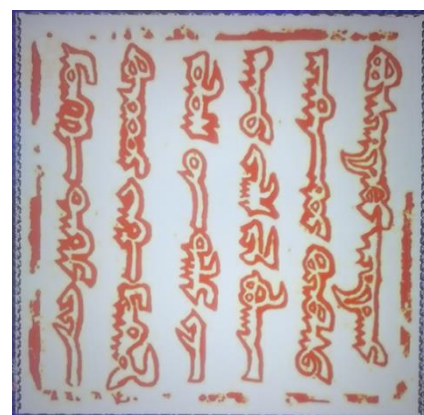 ᠮᠥᠩᠬᠡ ᠲᠩᠷᠢ ᠶᠢᠨ
ᠬᠦᠴᠦᠨᠳᠦᠷ ᠶᠡᠬᠡ ᠮᠣᠩᠭᠣᠯ
ᠤᠯᠤᠰ ᠤᠨ ᠳᠠᠯᠠᠢ ᠢᠨ
ᠬᠠᠨᠤ ᠵᠷᠯᠭ ᠢᠯ ᠪᠤᠯᠭᠠ
ᠢᠷᠭᠡᠨ ᠳᠦᠷ ᠬᠦᠷᠪᠡᠰᠦ
ᠪᠦᠰᠢᠷᠡᠲᠦᠭᠡᠢ ᠠᠶᠤᠲᠤᠭᠠᠢ